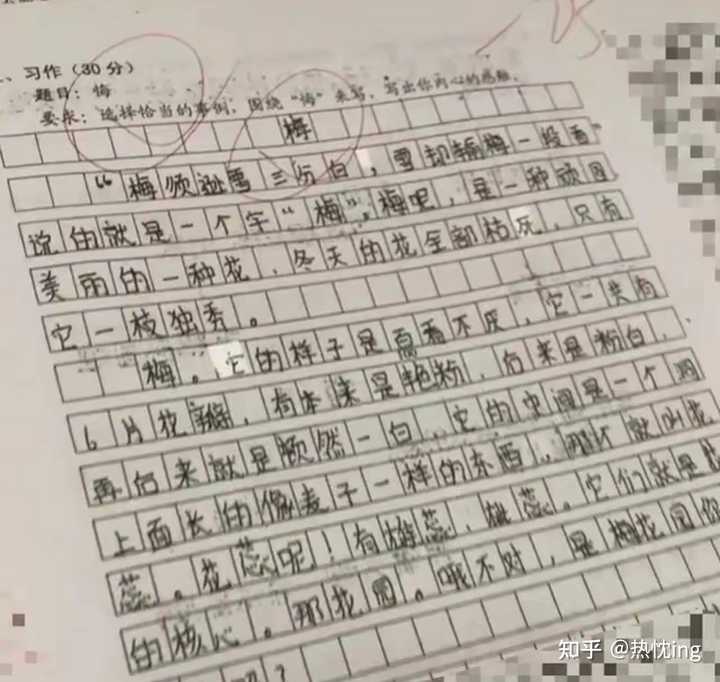 、习作(30分)
题目:悔
要求:选择恰当的事例,围绕“悔”来写,写出你内心的感触。
梅
“梅须逊雪三分白,雪却输梅一段香”
说的就是一个字“梅”,梅呢,是一种顽固
美丽的一种花,冬天的花全部枯死,只有
它一枝独秀。
梅。它的样子是百看不厌,它一共有
6片花瓣,有本来是艳粉,后来是粉白,
再后来就是颜然一白 它的中间是一个洞
上面长的像麦子一样的东西,那不就叫花
蕊。花蕊呢!有雄蕊,雌蕊。它们就是
的核心。那花园。哦不对,是梅花园
知乎 @热忱ing